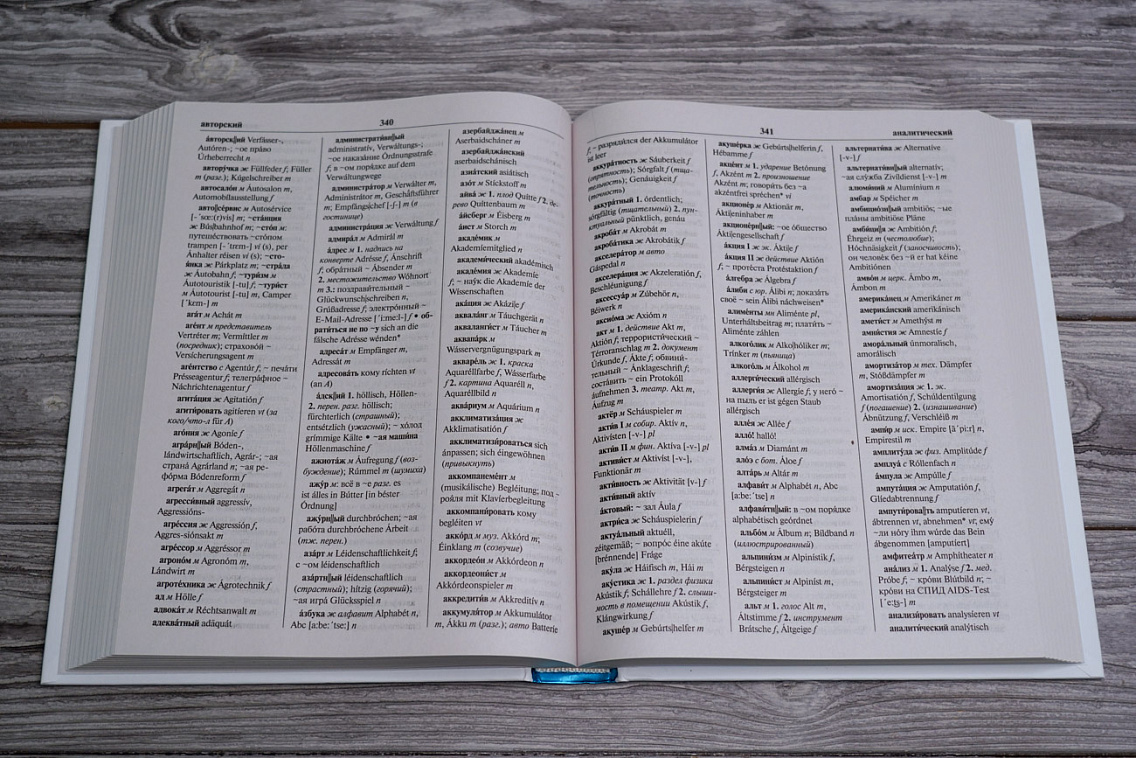 авторский
340
а́вторск||ий Verfásser-,
Autóren-; ~ое пра́во
Úrheberrecht n
автору́чка ж Füllfeder f, Füller
m (разг.); Kúgelschreiber m
автосало́н м Áutosalon m,
Automobílausstellung f
авто||се́рвис м Áutoservice
[-ˈsœ:(r)vis] m; ~ста́нция
ж Bús|bahnhof m; ~сто́п м:
путеше́ствовать ~сто́пом
trampen [-ˈtrɛm-] vi (s), per
Ánhalter réisen vi (s); ~сто-
я́нка ж Párkplatz m; ~стра́да
ж Áutobahn f; ~тури́зм м
Áutotouristik [-tu-] f; ~тури́ст
м Áutotourist [-tu-] m, Camper
[ˈkɛm-] m
ага́т м Achát m
аге́нт м представитель
Vertréter m; Vermíttler m
(посредник); страхово́й ~
Versícherungsagent m
аге́нтство с Agentúr f; ~ печа́ти
Présseagentur f; телегра́фное ~
Náchrichtenagentur f
агита́ция ж Agitatión f
агити́ровать agitíeren vt (за
кого/что-л für A)
аго́ния ж Agoníe f
агра́рн||ый Bóden-,
lándwirtschaftlich, Agrár-; ~ая
страна́ Agrárland n; ~ая ре-
фо́рма Bódenreform f
агрега́т м Aggregát n
агресси́вный aggressív,
Aggressións-
агре́ссия ж Aggressión f,
Aggres-siónsakt m
агре́ссор м Aggréssor m
агроно́м м Agronóm m,
Lándwirt m
агроте́хника ж Ágrotechnik f
ад м Hölle f
адвока́т м Réchtsanwalt m
адеква́тный adäquát
администрати́вн||ый
administratív, Verwáltungs-;
~ое наказа́ние Órdnungsstrafe
f; в ~ом поря́дке auf dem
Verwáltungswege
администра́тор м Verwálter m,
Administrátor m, Geschä́ftsführer
m; Empfángschef [-ʃ-] m (в
гостинице)
администра́ция ж Verwáltung f
адмира́л м Admirál m
а́дрес м 1. надпись на
конверте Adrésse f, Ánschrift
f; обра́тный ~ Ábsender m
2. местожительство Wóhnort
m 3.: поздрави́тельный ~
Glückwunschschreiben n,
Grúßadresse f; электро́нный ~
E-Mail-Adresse [ˈi:me:l-] f • об-
рати́ться не по ~у sich an die
fálsche Adrésse wénden*
адреса́т м Empfänger m,
Adressát m
адресова́ть кому ríchten vt
(an A)
а́дский 1. höllisch, Höllen-
2. перен. разг. höllisch;
fürchterlich (страшный);
entsétzlich (ужасный); ~ хо́лод
grímmige Kälte • ~ая маши́на
Höllenmaschine f
ажиота́ж м Áufregung f (воз-
буждение); Rúmmel m (шумиха)
ажу́р м: всё в ~е разг. es
ist álles in Bútter [in béster
Órdnung]
ажу́рн||ый durchbróchen; ~ая
рабо́та durchbróchene Árbeit
(тж. перен.)
аза́рт м Léidenschaftlichkeit f;
с ~ом léidenschaftlich
аза́ртн||ый léidenschaftlich
(страстный); hítzig (горячий);
~ая игра́ Glücksspiel n
а́збука ж алфавит Alphabét n,
Abc [a:be:ˈtse:] n
азербайджа́нец м
Aserbaidscháner m
азербайджа́нский
aserbaidschánisch
азиа́тский asiátisch
азо́т м Stíckstoff m
айва́ ж 1. плод Quítte f 2. де-
рево Quíttenbaum m
а́йсберг м Éisberg m
а́ист м Storch m
акаде́мик м
Akademíemitglied n
академи́ческий akadémisch
акаде́мия ж Akademíe
f; ~ нау́к die Akademie der
Wíssenschaften
ака́ция ж Akázi|e f
аквала́нг м Táuchgerät n
акваланги́ст м Táucher m
аквапа́рк м
Wásservergnügungspark m
акваре́ль ж 1. краска
Aquaréllfarbe f, Wásserfarbe
f 2. картина Aquaréll n,
Aquaréllbild n
аква́риум м Aquárium n
акклиматиза́ция ж
Akklimatisatión f
акклиматизи́роваться sich
ánpassen; sich éingewöhnen
(привыкнуть)
аккомпанеме́нт м
(musikálische) Begléitung; под ~
роя́ля mit Klavíerbegleitung
аккомпани́ровать кому
begléiten vt
акко́рд м муз. Akkórd m;
Éinklang m (созвучие)
аккордео́н м Akkórdeon n
аккордеони́ст м
Akkórdeonspieler m
аккредити́в м Akkreditív n
аккумуля́тор м Akkumulátor
m, Ákku m (разг.); авто Batteríe
341
аналитический
f; ~ разряди́лся der Akkumulátor
ist leer
аккура́тность ж Sáuberkeit f
(опрятность); Sórgfalt f (тща-
тельность); Genáuigkeit f
(точность)
аккура́тный 1. órdentlich;
sórgfältig (тщательный) 2. пун-
ктуальный pünktlich, genáu
акроба́т м Akrobát m
акроба́тика ж Akrobátik f
акселера́тор м авто
Gáspedal n
акселера́ция ж Akzeleratión f,
Beschléunigung f
аксессуа́р м Zúbehör n,
Béiwerk n
аксио́ма ж Axióm n
акт м 1. действие Akt m,
Aktión f; террористи́ческий ~
Térroranschlag m 2. документ
Úrkunde f, Ákte f; обвини́-
тельный ~ Ánklageschrift f;
соста́вить ~ ein Protokóll
áufnehmen 3. театр. Akt m,
Áufzug m
актёр м Scháuspieler m
акти́в I м собир. Aktív n,
Aktivísten [-v-] pl
акти́в II м фин. Aktíva [-v-] pl
активи́ст м Aktivíst [-v-],
Funktionär m
акти́вность ж Aktivität [-v-] f
акти́вный aktív
а́ктовый: ~ зал Áula f
актри́са ж Scháuspielerin f
актуа́льный aktuéll,
zéitgemäß; ~ вопро́с éine akúte
[brénnende] Fráge
аку́ла ж Háifisch m, Hai m
аку́стика ж 1. раздел физики
Akústik f; Schállehre f 2. слыши-
мость в помещении Akústik f,
Klángwirkung f
акуше́р м Gebúrts|helfer m
акуше́рка ж Gebúrts|helferin f,
Hébamme f
акце́нт м 1. ударение Betónung
f, Akzént m 2. произношение
Akzént m; говори́ть без ~а
akzéntfrei spréchen* vi
акционе́р м Aktionär m,
Ákti|eninhaber m
акционе́рн||ый: ~ое о́бщество
Ákti|engesellschaft f
а́кция I ж эк. Ákti|e f
а́кция II ж действие Aktión
f; ~ проте́ста Protéstaktion f
а́лгебра ж Álgebra f
а́либи с юр. Álibi n; доказа́ть
своё ~ sein Álibi náchweisen*
алиме́нты мн Aliménte pl,
Únterhaltsbeitrag m; плати́ть ~
Aliménte záhlen
алкого́лик м Alko|hóliker m;
Trínker m (пьяница)
алкого́ль м Álkohol m
аллерги́ческий allérgisch
аллерги́я ж Allergíe f; у него́ ~
на пыль er ist gégen Staub
allérgisch
алле́я ж Allée f
алло́! halló!
алма́з м Diamánt m
ало́э с бот. Áloe f
алта́рь м Altár m
алфави́т м Alphabét n, Abc
[a:be:ˈtse:] n
алфави́тн||ый: в ~ом поря́дке
alphabétisch geórdnet
альбо́м м Álbum n; Bíldband n
(иллюстрированный)
альпини́зм м Alpinístik f,
Bérgsteigen n
альпини́ст м Alpiníst m,
Bérgsteiger m
альт м 1. голос Alt m,
Áltstimme f 2. инструмент
Brátsche f, Áltgeige f
альтернати́ва ж Alternatíve
[-v-] f
альтернати́вн||ый alternatív;
~ая слу́жба Zivíldienst [-v-] m
алюми́ний м Alumínium n
амба́р м Spéicher m
амбицио́зн||ый ambitiös; ~ые
пла́ны ambitiöse Pläne
амби́ци||я ж Ambitión f,
Éhrgeiz m (честолюбие);
Hóchnäsigkeit f (заносчивость);
он челове́к без ~й er hat kéine
Ambitiónen
амво́н м церк. Ámbo m,
Ámbon m
америка́нец м Amerikáner m
америка́нский amerikánisch
амети́ст м Amethýst m
амни́стия ж Amnestíe f
амора́льный únmoralisch,
amorálisch
амортиза́тор м тех. Dämpfer
m, Stóßdämpfer m
амортиза́ция ж 1. эк.
Amortisatión f, Schúldentilgung
f (погашение) 2. (изнашивание)
Ábnützung f, Verschléiß m
ампи́р м иск. Empire [ãˈpi:r] n,
Empírestil m
амплиту́да ж физ. Amplitúde f
амплуа́ с Róllenfach n
а́мпула ж Ampúlle f
ампута́ция ж Amputatión f,
Glíedabtrennung f
ампути́ров||ать amputíeren vt,
ábtrennen vt, ábnehmen* vt; ему́
~ли но́гу ihm wúrde das Bein
ábgenommen [amputíert]
амфитеа́тр м Amphítheater n
ана́лиз м 1. Analýse f 2. мед.
Próbe f; ~ кро́ви Blútbild n; ~
кро́ви на СПИД AIDS-Test
[ˈe:ts-] m
анализи́ровать analysíeren vt
аналити́ческий analýtisch